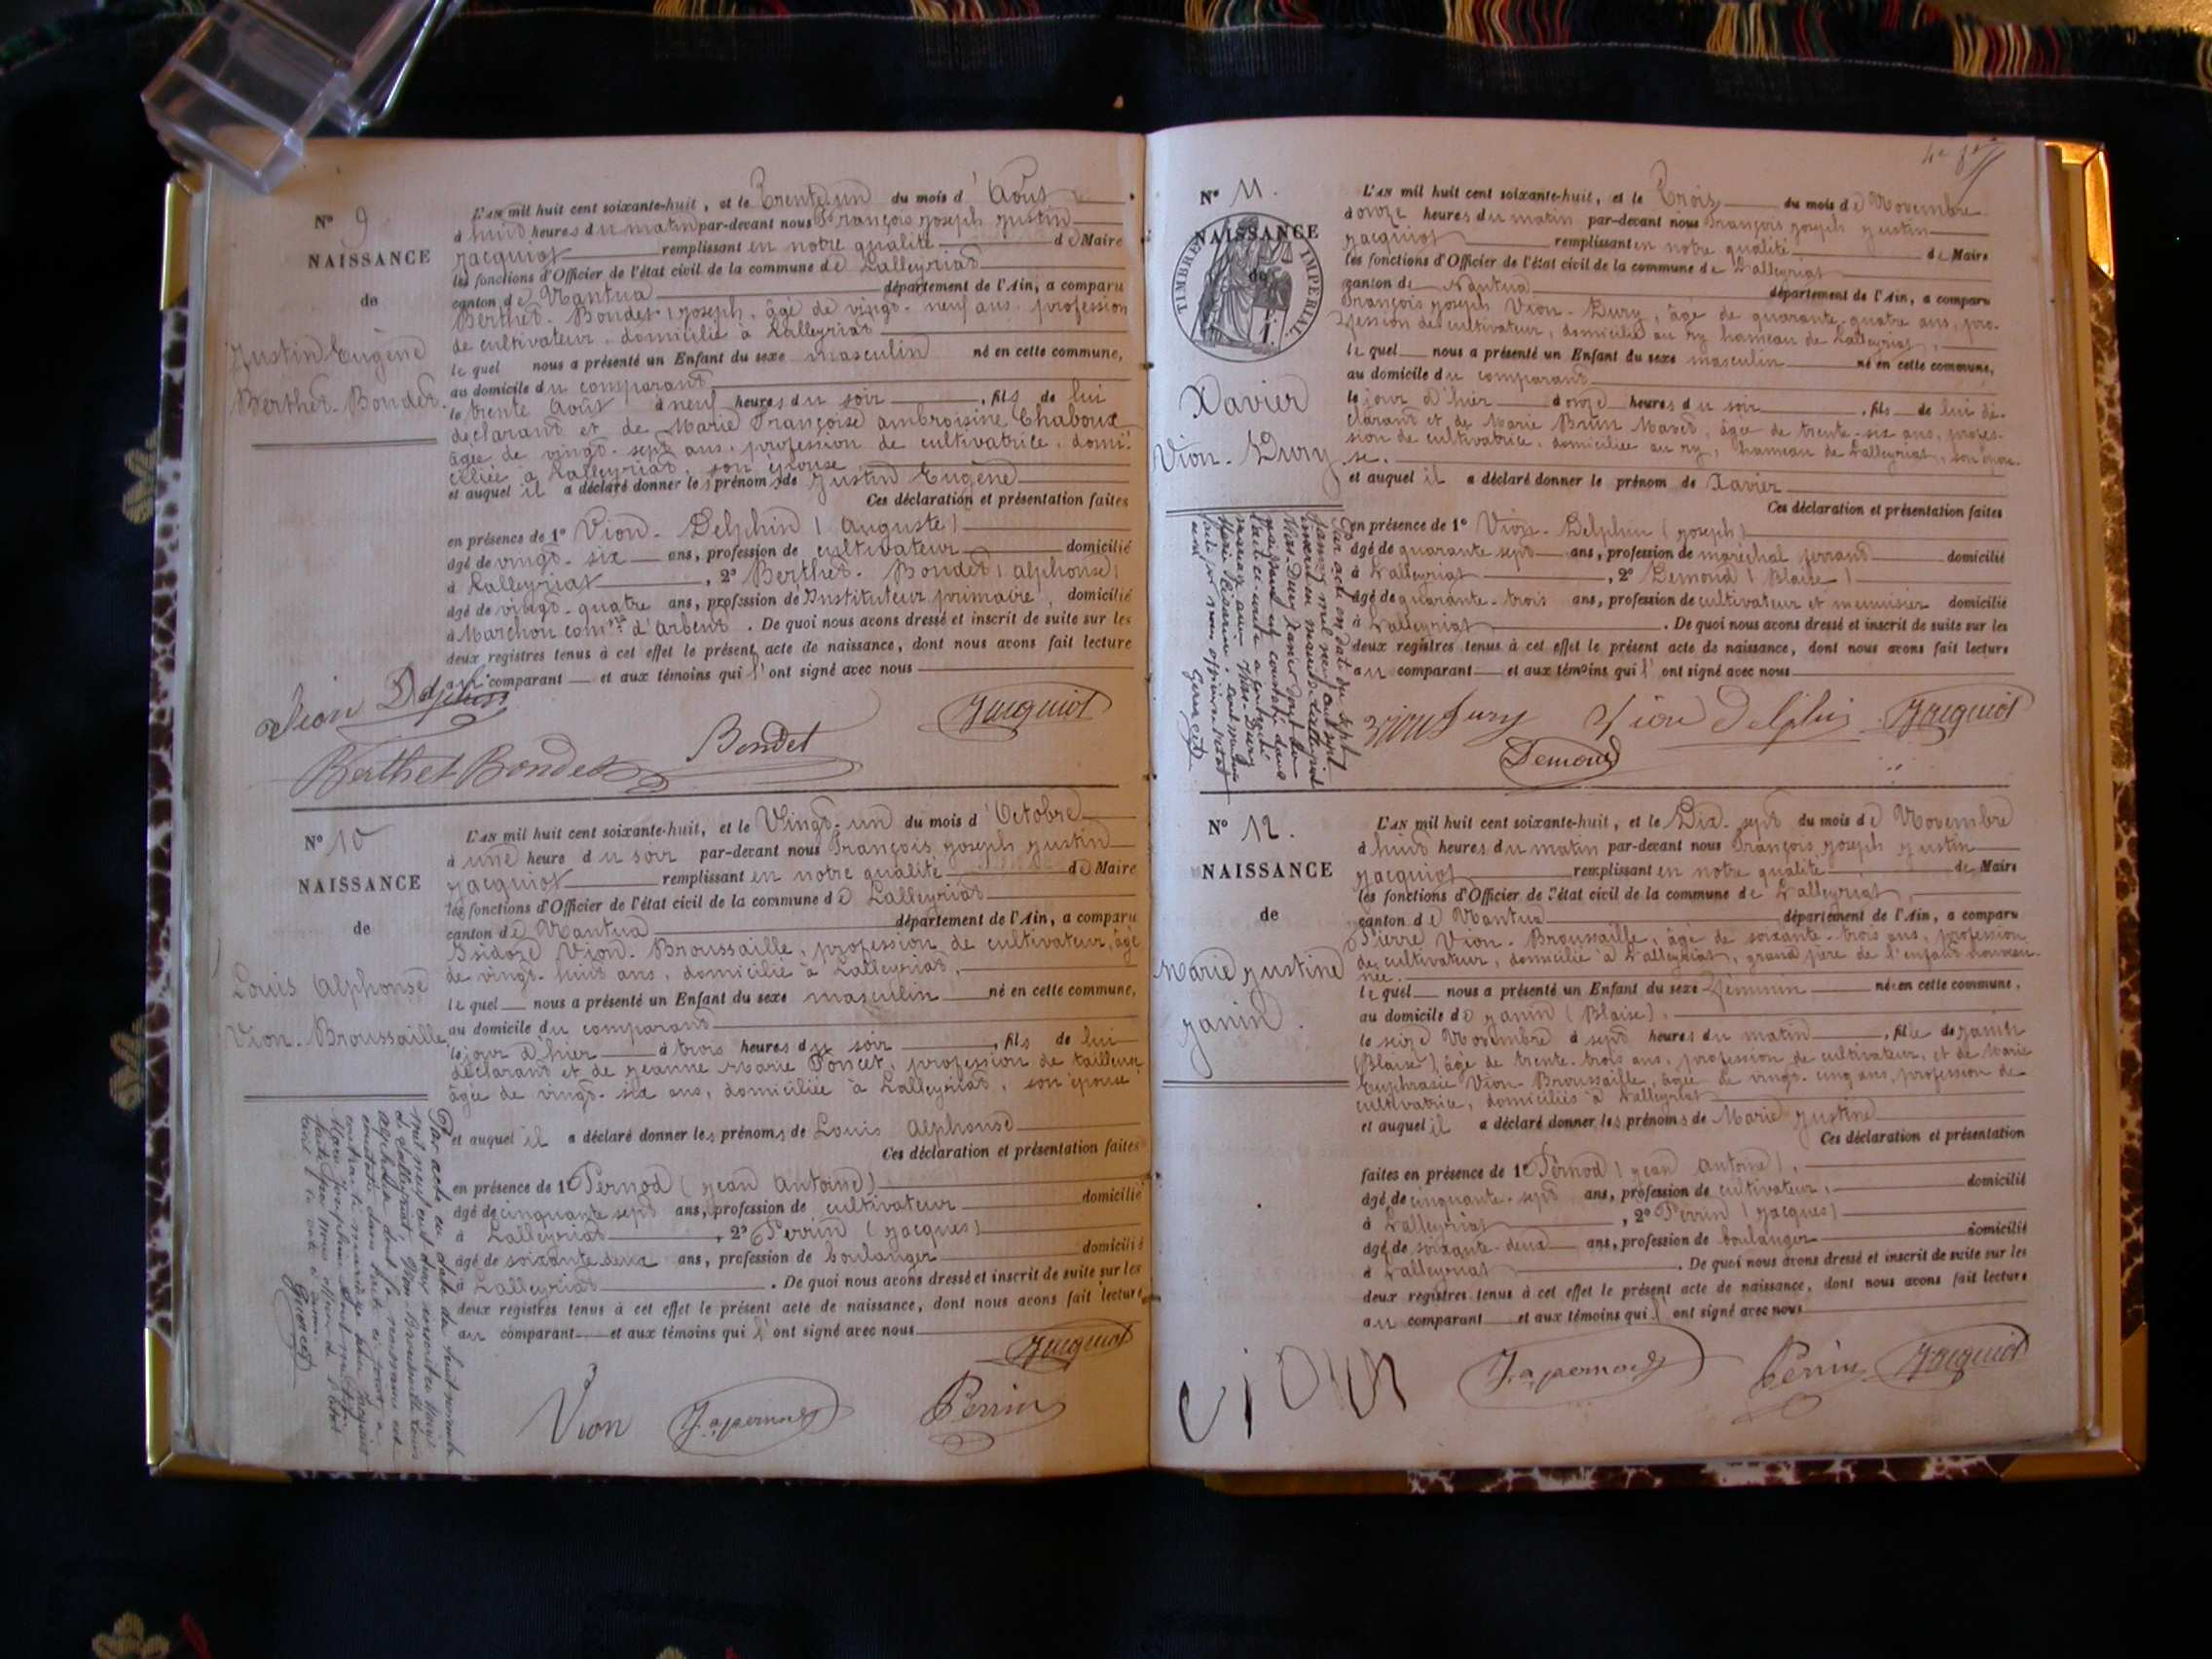 N° 9
NAISSANCE
de
Justin Eugène
Berthet-Bondet.
L'AN mil huit cent soixante-huit, et le Trente un du mois d'Août
à huit heures du matin par-devant nous François Joseph Justin
Jacquiot remplissant en notre qualité de Maire
les fonctions d'Officier de l'état civil de la commune de Lalleyriat
canton de Nantua département de l'Ain, a comparu
Berthet-Bondet (Joseph, âgé de vingt-neuf ans, profession
de cultivateur, domicilié à Lalleyriat
lequel nous a présenté un Enfant du sexe masculin né en cette commune,
au domicile du comparant
le trente Août à neuf heures du soir, fils de lui
déclarant et de Marie Françoise ambroisine Chaboux
âgée de vingt-sept ans, profession de cultivatrice, domi-
ciliée à Lalleyriat, son épouse
et auquel il a déclaré donner les prénoms de Justin Eugène
Ces déclaration et présentation faites
en présence de 1° Vion-Delphin (Auguste)
âgé de vingt-six ans, profession de cultivateur domicilié
à Lalleyriat, 2° Berthet-Bondet (alphonse)
âgé de vingt-quatre ans, profession de Instituteur primaire, domicilié
à Marchon com.ne d'Arbent. De quoi nous avons dressé et inscrit de suite sur les
deux registres tenus à cet effet le présent acte de naissance, dont nous avons fait lecture
au comparant et aux témoins qui l'ont signé avec nous
Vion Delphin
Jacquiot
Bondet
Berthet Bondet
N° 10
NAISSANCE
de
Louis Alphonse
Vion-Broussaille
L'AN mil huit cent soixante-huit, et le Vingt-un du mois d'Octobre
à une heure du soir par-devant nous François Joseph Justin
Jacquiot remplissant en notre qualité de Maire
les fonctions d'Officier de l'état civil de la commune de Lalleyriat
canton de Nantua département de l'Ain, a comparu
Isidore Vion-Broussaille, profession de cultivateur, âgé
de vingt-huit ans, domicilié à Lalleyriat,
lequel nous a présenté un Enfant du sexe masculin né en cette commune,
au domicile du comparant
le jour d'hier à trois heures du soir, fils de lui
déclarant et de Jeanne Marie Poncet, profession de tailleuse
âgée de vingt-six ans, domiciliée à Lalleyriat, son épouse
et auquel il a déclaré donner les prénoms de Louis Alphonse
Ces déclaration et présentation faites
en présence de 1° Pernod (Jean Antoine)
âgé de cinquante sept ans, profession de cultivateur domicilié
à Lalleyriat, 2° Perrin (Jacques)
âgé de soixante deux ans, profession de boulanger domicilié
à Lalleyriat. De quoi nous avons dressé et inscrit de suite sur les
deux registres tenus à cet effet le présent acte de naissance, dont nous avons fait lecture
au comparant et aux témoins qui l'ont signé avec nous
Par acte en date du huit novembre
Jacquiot
Vion
J. a. pernod
Perrin
N° 11.
NAISSANCE
de
TIMBRE IMPERIAL
Xavier
Vion-Dury
L'AN mil huit cent soixante-huit, et le Trois du mois de Novembre
à onze heures du matin par-devant nous François Joseph Justin
Jacquiot remplissant en notre qualité de Maire
les fonctions d'Officier de l'état civil de la commune de Lalleyriat
canton de Nantua département de l'Ain, a comparu
François Joseph Vion-Dury, âgé de quarante-quatre ans, pro-
fession de cultivateur, domicilié au ry hameau de Lalleyriat,
lequel nous a présenté un Enfant du sexe masculin né en cette commune,
au domicile du comparant
le jour d'hier à onze heures du soir, fils de lui dé-
clarant et de Marie Brun Mavet, âgée de trente-six ans, profes-
sion de cultivatrice, domiciliée au ry, hameau de Lalleyriat, son épou-
se.
et auquel il a déclaré donner le prénom de Xavier
Ces déclaration et présentation faites
en présence de 1° Vion-Delphin (Joseph)
âgé de quarante sept ans, profession de maréchal ferrant domicilié
à Lalleyriat, 2° Demond (Blaise)
âgé de quarante-trois ans, profession de cultivateur et menuisier domicilié
à Lalleyriat. De quoi nous avons dressé et inscrit de suite sur les
deux registres tenus à cet effet le présent acte de naissance, dont nous avons fait lecture
au comparant et aux témoins qui l'ont signé avec nous
Par acte en date du sept
Vion Dury
Vion Delphin
Jacquiot
Demond
N° 12.
NAISSANCE
de
Marie Justine
Janin.
L'AN mil huit cent soixante-huit, et le Dix-sept du mois de Novembre
à huit heures du matin par-devant nous François Joseph Justin
Jacquiot remplissant en notre qualité de Maire
les fonctions d'Officier de l'état civil de la commune de Lalleyriat,
canton de Nantua département de l'Ain, a comparu
Pierre Vion-Broussaille, âgé de soixante-trois ans, profession
de cultivateur, domicilié à Lalleyriat, grand père de l'enfant nouveau-
née
lequel nous a présenté un Enfant du sexe féminin né en cette commune,
au domicile de Janin (Blaise),
le seize Novembre à sept heures du matin, fille de Janin
(Blaise), âgé de trente-trois ans, profession de cultivateur, et de Marie
Euphrasie Vion-Broussaille, âgée de vingt-cinq ans, profession de
cultivatrice, domiciliés à Lalleyriat
et auquel il a déclaré donner les prénoms de Marie Justine
Ces déclaration et présentation
faites en présence de 1° Pernod (Jean Antoine),
âgé de cinquante-sept ans, profession de cultivateur, domicilié
à Lalleyriat, 2° Perrin (Jacques)
âgé de soixante-deux ans, profession de boulanger domicilié
à Lalleyriat. De quoi nous avons dressé et inscrit de suite sur les
deux registres tenus à cet effet le présent acte de naissance, dont nous avons fait lecture
au comparant et aux témoins qui l'ont signé avec nous
vion
J. a. pernod
Perrin
Jacquiot